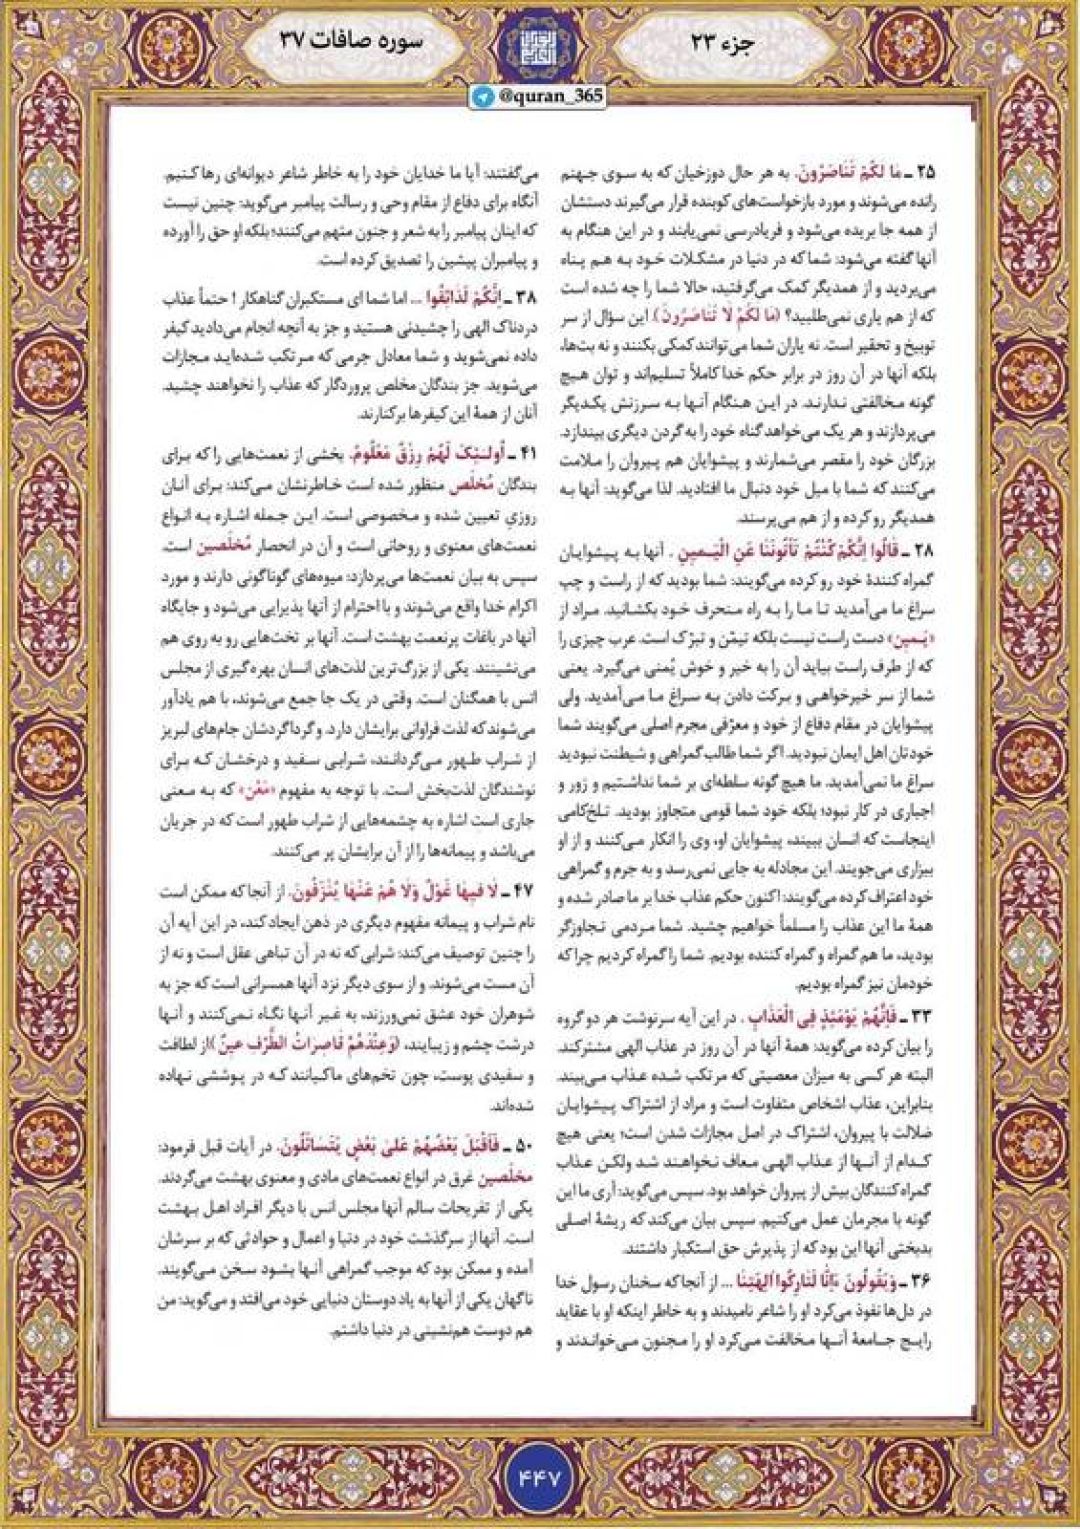 جزء ۲۳
سوره صافات ۳۷
@quran_365
۲۵ ـ مَا لَكُمْ تَنَاصَرُونَ. به هر حال دوزخیان که به سوی جهنم
رانده می‌شوند و مورد بازخواست‌های کوبنده قرار می‌گیرند دستشان
از همه جا بریده می‌شود و فریادرسی نمی‌یابند و در این هنگام به
آنها گفته می‌شود: شما که در دنیا در مشکلات خود به هم پناه
می‌بردید و از همدیگر کمک می‌گرفتید، حالا شما را چه شده است
که از هم یاری نمی‌طلبید؟ (مَا لَكُمْ لَا تَنَاصَرُونَ). این سؤال از سر
توبیخ و تحقیر است. نه یاران شما می‌توانند کمکی بکنند و نه بت‌ها،
بلکه آنها در آن روز در برابر حکم خدا کاملاً تسلیم‌اند و توان هیچ
گونه مخالفتی ندارند. در این هنگام آنها به سرزنش یکدیگر
می‌پردازند و هر یک می‌خواهد گناه خود را به گردن دیگری بیندازد.
بزرگان خود را مقصر می‌شمارند و پیشوایان هم پیروان را ملامت
می‌کنند که شما با میل خود دنبال ما افتادید. لذا می‌گوید: آنها به
همدیگر رو کرده و از هم می‌پرسند.
۲۸ ـ قَالُوا إِنَّكُمْ كُنْتُمْ تَأْتُونَنَا عَنِ الْيَمينِ . آنها به پیشوایان
گمراه کنندهٔ خود رو کرده می‌گویند: شما بودید که از راست و چپ
سراغ ما می‌آمدید تا ما را به راه منحرف خود بکشانید. مراد از
«یمین» دست راست نیست بلکه تیمّن و تبرّک است. عرب چیزی را
که از طرف راست بیاید آن را به خیر و خوش یُمنی می‌گیرد. یعنی
شما از سر خیرخواهی و برکت دادن به سراغ ما می‌آمدید. ولی
پیشوایان در مقام دفاع از خود و معرّفی مجرم اصلی می‌گویند شما
خودتان اهل ایمان نبودید. اگر شما طالب گمراهی و شیطنت نبودید
سراغ ما نمی‌آمدید. ما هیچ گونه سلطه‌ای بر شما نداشتیم و زور و
اجباری در کار نبود؛ بلکه خود شما قومی متجاوز بودید. تلخ‌کامی
اینجاست که انسان ببیند، پیشوایان او، وی را انکار می‌کنند و از او
بیزاری می‌جویند. این مجادله به جایی نمی‌رسد و به جرم و گمراهی
خود اعتراف کرده می‌گویند: اکنون حکم عذاب خدا بر ما صادر شده و
همهٔ ما این عذاب را مسلماً خواهیم چشید. شما مردمی تجاوزگر
بودید، ما هم گمراه و گمراه کننده بودیم. شما را گمراه کردیم چرا که
خودمان نیز گمراه بودیم.
۳۳ ـ فَإِنَّهُمْ يَوْمَئِذٍ فِي الْعَذَابِ . در این آیه سرنوشت هر دو گروه
را بیان کرده می‌گوید: همهٔ آنها در آن روز در عذاب الهی مشترکند.
البته هر کسی به میزان معصیتی که مرتکب شده عذاب می‌بیند.
بنابراین، عذاب اشخاص متفاوت است و مراد از اشتراک پیشوایان
ضلالت با پیروان، اشتراک در اصل مجازات شدن است؛ یعنی هیچ
کدام از آنها از عذاب الهی معاف نخواهند شد ولکن عذاب
گمراه کنندگان بیش از پیروان خواهد بود. سپس می‌گوید: آری ما این
گونه با مجرمان عمل می‌کنیم. سپس بیان می‌کند که ریشهٔ اصلی
بدبختی آنها این بود که از پذیرش حق استکبار داشتند.
۳۶ ـ وَيَقُولُونَ ءَإِنَّا لَتَارِكُوا آلِهَتِنَا ... از آنجا که سخنان رسول خدا
در دل‌ها نفوذ می‌کرد او را شاعر نامیدند و به خاطر اینکه او با عقاید
رایج جامعهٔ آنها مخالفت می‌کرد او را مجنون می‌خواندند و
می‌گفتند: آیا ما خدایان خود را به خاطر شاعر دیوانه‌ای رها کنیم.
آنگاه برای دفاع از مقام وحی و رسالت پیامبر می‌گوید: چنین نیست
که اینان پیامبر را به شعر و جنون متهم می‌کنند؛ بلکه او حق را آورده
و پیامبران پیشین را تصدیق کرده است.
۳۸ ـ إِنَّكُمْ لَذَائِقُوا ... اما شما ای مستکبران گناهکار! حتماً عذاب
دردناک الهی را چشیدنی هستید و جز به آنچه انجام می‌دادید کیفر
داده نمی‌شوید و شما معادل جرمی که مرتکب شده‌اید مجازات
می‌شوید. جز بندگان مخلص پروردگار که عذاب را نخواهند چشید.
آنان از همهٔ این کیفرها برکنارند.
۴۱ ـ أُولٰئِكَ لَهُمْ رِزْقٌ مَعْلُومٌ. بخشی از نعمت‌هایی را که برای
بندگان مُخلَص منظور شده است خاطرنشان می‌کند: برای آنان
روزیِ تعیین شده و مخصوصی است. این جمله اشاره به انواع
نعمت‌های معنوی و روحانی است و آن در انحصار مُخلَصین است.
سپس به بیان نعمت‌ها می‌پردازد: میوه‌های گوناگونی دارند و مورد
اکرام خدا واقع می‌شوند و با احترام از آنها پذیرایی می‌شود و جایگاه
آنها در باغات پرنعمت بهشت است. آنها بر تخت‌هایی رو به روی هم
می‌نشینند. یکی از بزرگ‌ترین لذت‌های انسان بهره‌گیری از مجلس
انس با همگنان است. وقتی در یک جا جمع می‌شوند، با هم یادآور
می‌شوند که لذت فراوانی برایشان دارد. و گرداگردشان جام‌های لبریز
از شراب طهور می‌گردانند، شرابی سفید و درخشان که برای
نوشندگان لذت‌بخش است. با توجه به مفهوم «مَعْن» که به معنی
جاری است اشاره به چشمه‌هایی از شراب طهور است که در جریان
می‌باشد و پیمانه‌ها را از آن برایشان پر می‌کنند.
۴۷ ـ لَا فِيهَا غَوْلٌ وَلَا هُمْ عَنْهَا يُنْزَفُونَ. از آنجا که ممکن است
نام شراب و پیمانه مفهوم دیگری در ذهن ایجاد کند، در این آیه آن
را چنین توصیف می‌کند: شرابی که نه در آن تباهی عقل است و نه از
آن مست می‌شوند. و از سوی دیگر نزد آنها همسرانی است که جز به
شوهران خود عشق نمی‌ورزند، به غیر آنها نگاه نمی‌کنند و آنها
درشت چشم و زیبایند، (وَعِنْدَهُمْ قَاصِرَاتُ الطَّرْفِ عِينٌ) از لطافت
و سفیدی پوست، چون تخم‌های ماکیانند که در پوششی نهاده
شده‌اند.
۵۰ ـ فَأَقْبَلَ بَعْضُهُمْ عَلَىٰ بَعْضٍ يَتَسَائَلُونَ. در آیات قبل فرمود:
مخلَصین غرق در انواع نعمت‌های مادی و معنوی بهشت می‌گردند.
یکی از تفریحات سالم آنها مجلس انس با دیگر افراد اهل بهشت
است. آنها از سرگذشت خود در دنیا و اعمال و حوادثی که بر سرشان
آمده و ممکن بود که موجب گمراهی آنها بشود سخن می‌گویند.
ناگهان یکی از آنها به یاد دوستان دنیایی خود می‌افتد و می‌گوید: من
هم دوست هم‌نشینی در دنیا داشتم.
۴۴۷